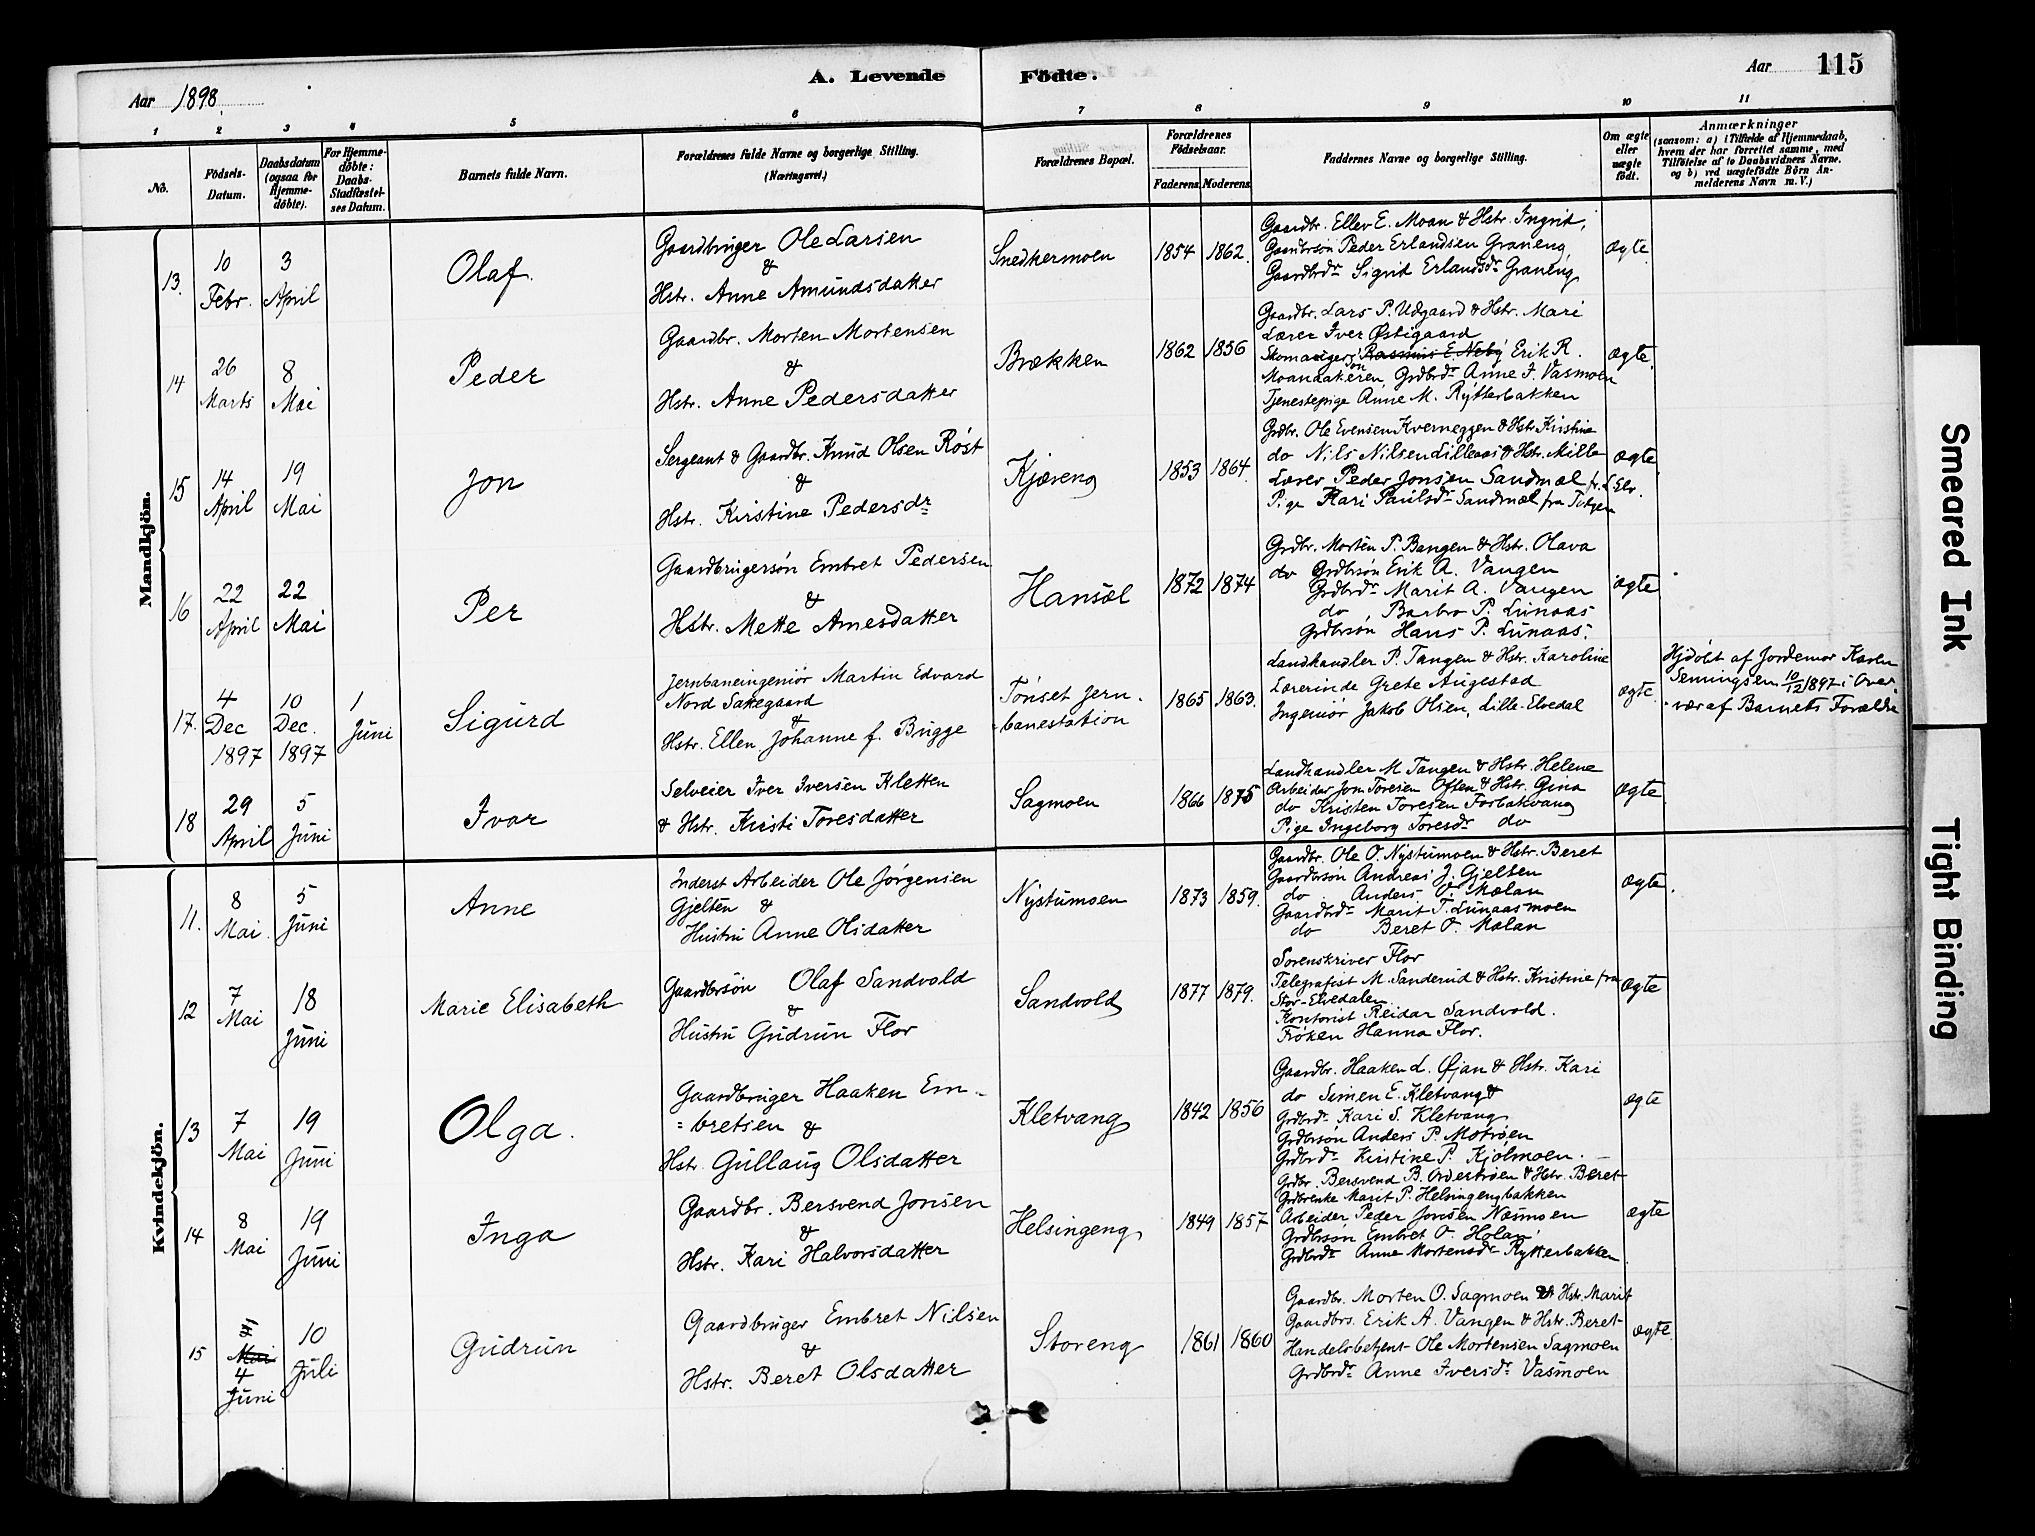 A. Levende Födte.
Aar 1898
Aar 115
1 2 3 4 5 6 7 8 9 10 11
No.
Födsels-Datum.
Daabsdatum (ogsaa for Hjemme-döbte).
For Hjemme-döbte: Daabs-Stadfæstel-ses Datum.
Barnets fulde Navn.
Forældrenes fulde Navne og borgerlige Stilling.
(Næringsvei.)
Forældrenes Bopæl.
Forældrenes Födselsaar.
Faderens. Moderens.
Faddernes Navne og borgerlige Stilling.
Om ægte eller uægte födt.
Anmærkninger
(saasom: a) i Tilfælde af Hjemmedaab, hvem der har forrettet samme, med Tilföielse af to Daabsvidners Navne. og b) ved uægtefödte Börn An-melderens Navn m. V.)
Mandkjön.
13. 10 Febr. 3 April
Olaf.
Gaardbruger Ole Larsen
&
Hstr. Anne Amundsdatter
Snedkermoen
1854 1862.
Gaardbr. Ellev E. Moan & Hstr. Ingrid,
Gaardbrsön Peder Erlandsen Graneng
Gaardbrdr Sigrid Erlandsdr Graneng
ægte
14 26 Marts 8 Mai
Peder
Gaardbr. Morten Mortensen
&
Hstr. Anne Pedersdatter
Brækken
1862 1856
Gaardbr. Lars P. Udgaard & Hstr. Mari
Lærer Iver Østigaard
Rasmus E. Neby Erik R.
Moanaakeren, Grdbrdr Anne I. Vasmoen
Tjenestepige Anne M. Rytterbakken
ægte.
15 14 April 19 Mai
Jon
Sergeant & Gaardbr. Knud Olsen Røst
&
Hstr. Kirstine Pedersdr
Kjæreng
1853 1864.
Grdbr. Ole Evensen Kverneggen & Hstr. Kristine
do Nils Nilsen Lilleaas & Hstr. Mille
Lærer Peder Jonsen Sandmæl fr. L Elv.
Pige Kari Paulsdr Sandmæl fra
ægte
16 22 April 22 Mai
Per
Gaardbrugersøn Embret Pedersen
&
Hstr. Mette Arnesdatter
Hansæl
1872 1874
Grdbr. Morten P. Bangen & Hstr. Olava
do Grdbrsön Erik A. Vangen
Grdbrdr Marit A. Vangen
do Barbro P. Lunaas
Grdbrsön Hans P. Lunaas.
ægte
17. 4 Dec 1897 10 Dec. 1897 1 Juni
Sigurd
Jernbaneingeniør Martin Edvard
Nord Sakegaard
&
Hstr. Ellen Johanne f. Bugge
Tønset Jern-
banestation
1865 1863.
Landhandler P. Tangen & Hstr. Karoline
Lærerinde Grete Augestad
Ingeniør Jakob Olsen, Lille-Elvedal
ægte.
Hjdöbt af Jordemor Karen
Semingsen 10/12 1897 i Over-
vær af Barnets Forældre
18 29 April 5 Juni
Ivar
Selveier Iver Iversen Kletten
& Hstr. Kirsti Toresdatter
Sagmoen
1866 1875
Landhandler M. Tangen & Hstr. Helene
Arbeider Jon Toresen Often & Hstr. Gina
do Kristen Toresen Torbakvang
Pige Ingeborg Toresdr do
ægte
Kvindekjön.
11. 8 Mai. 5 Juni
Anne
Inderst Arbeider Ole Jørgensen
Gjelten &
Hustru Anne Olsdatter
Nystumoen
1873 1859.
Gaardbr. Ole O. Nystumoen & Hstr. Beret
Gaardbrsön Andreas J. Gjelten
do Anders O. Mælan
Gaardbrdr Marit T. Lunaasmoen
do Beret O. Mælan
ægte.
12 7 Mai 18 Juni
Marie Elisabeth
Gaardbrsön Olaf Sandvold
&
Hustru Gudrun Flor
Sandvold
1877 1879.
Sorenskriver Flor
Telegrafist M. Sanderud & Hstr. Kristine fra
Stor-Elvedalen
Kontorist Reidar Sandvold.
Frøken Hanna Flor.
ægte
13 7 Mai 19 Juni
Olga.
Gaardbruger Haaken Em-
bretsen &
Hstr. Gullaug Olsdatter
Kletvang
1842 1856
Gaardbr. Haaken L. Øjan & Hstr. Kari
do Simen E. Kletvang &
Grdbrdr Kari S. Kletvang
Grdbrsön Anders P. Motrøen
Grdbrdr Kirstine P. Kjølmoen.
ægte
14 8 Mai 19 Juni
Inga
Gaardbr. Bersvend Jonsen
&
Hstr. Kari Halvorsdatter
Helsingeng
1849 1857
Grdbr. Bersvend B. & Hstr. Beret
Grdbrenke Marit P. Helsingengbakken
Arbeider Peder Jonsen Næsmoen
Grdbrsön Embret O. Holan
Grdbrdr Anne Mortensdr Rytterbakken
ægte
15 Mai 4 Juni 10 Juli
Gudrun
Gaardbruger Embret Nilsen
&
Hstr. Beret Olsdatter
Storeng
1861 1860
Gaardbr. Morten O. Sagmoen & Hstr. Marit
Gaardbrs. Erik A. Vangen & Hstr. Beret
Handelsbetjent Ole Mortensen Sagmoen
Grdbrdr Anne Iversdr Vasmoen
ægte.
Smeared Ink
Tight Binding